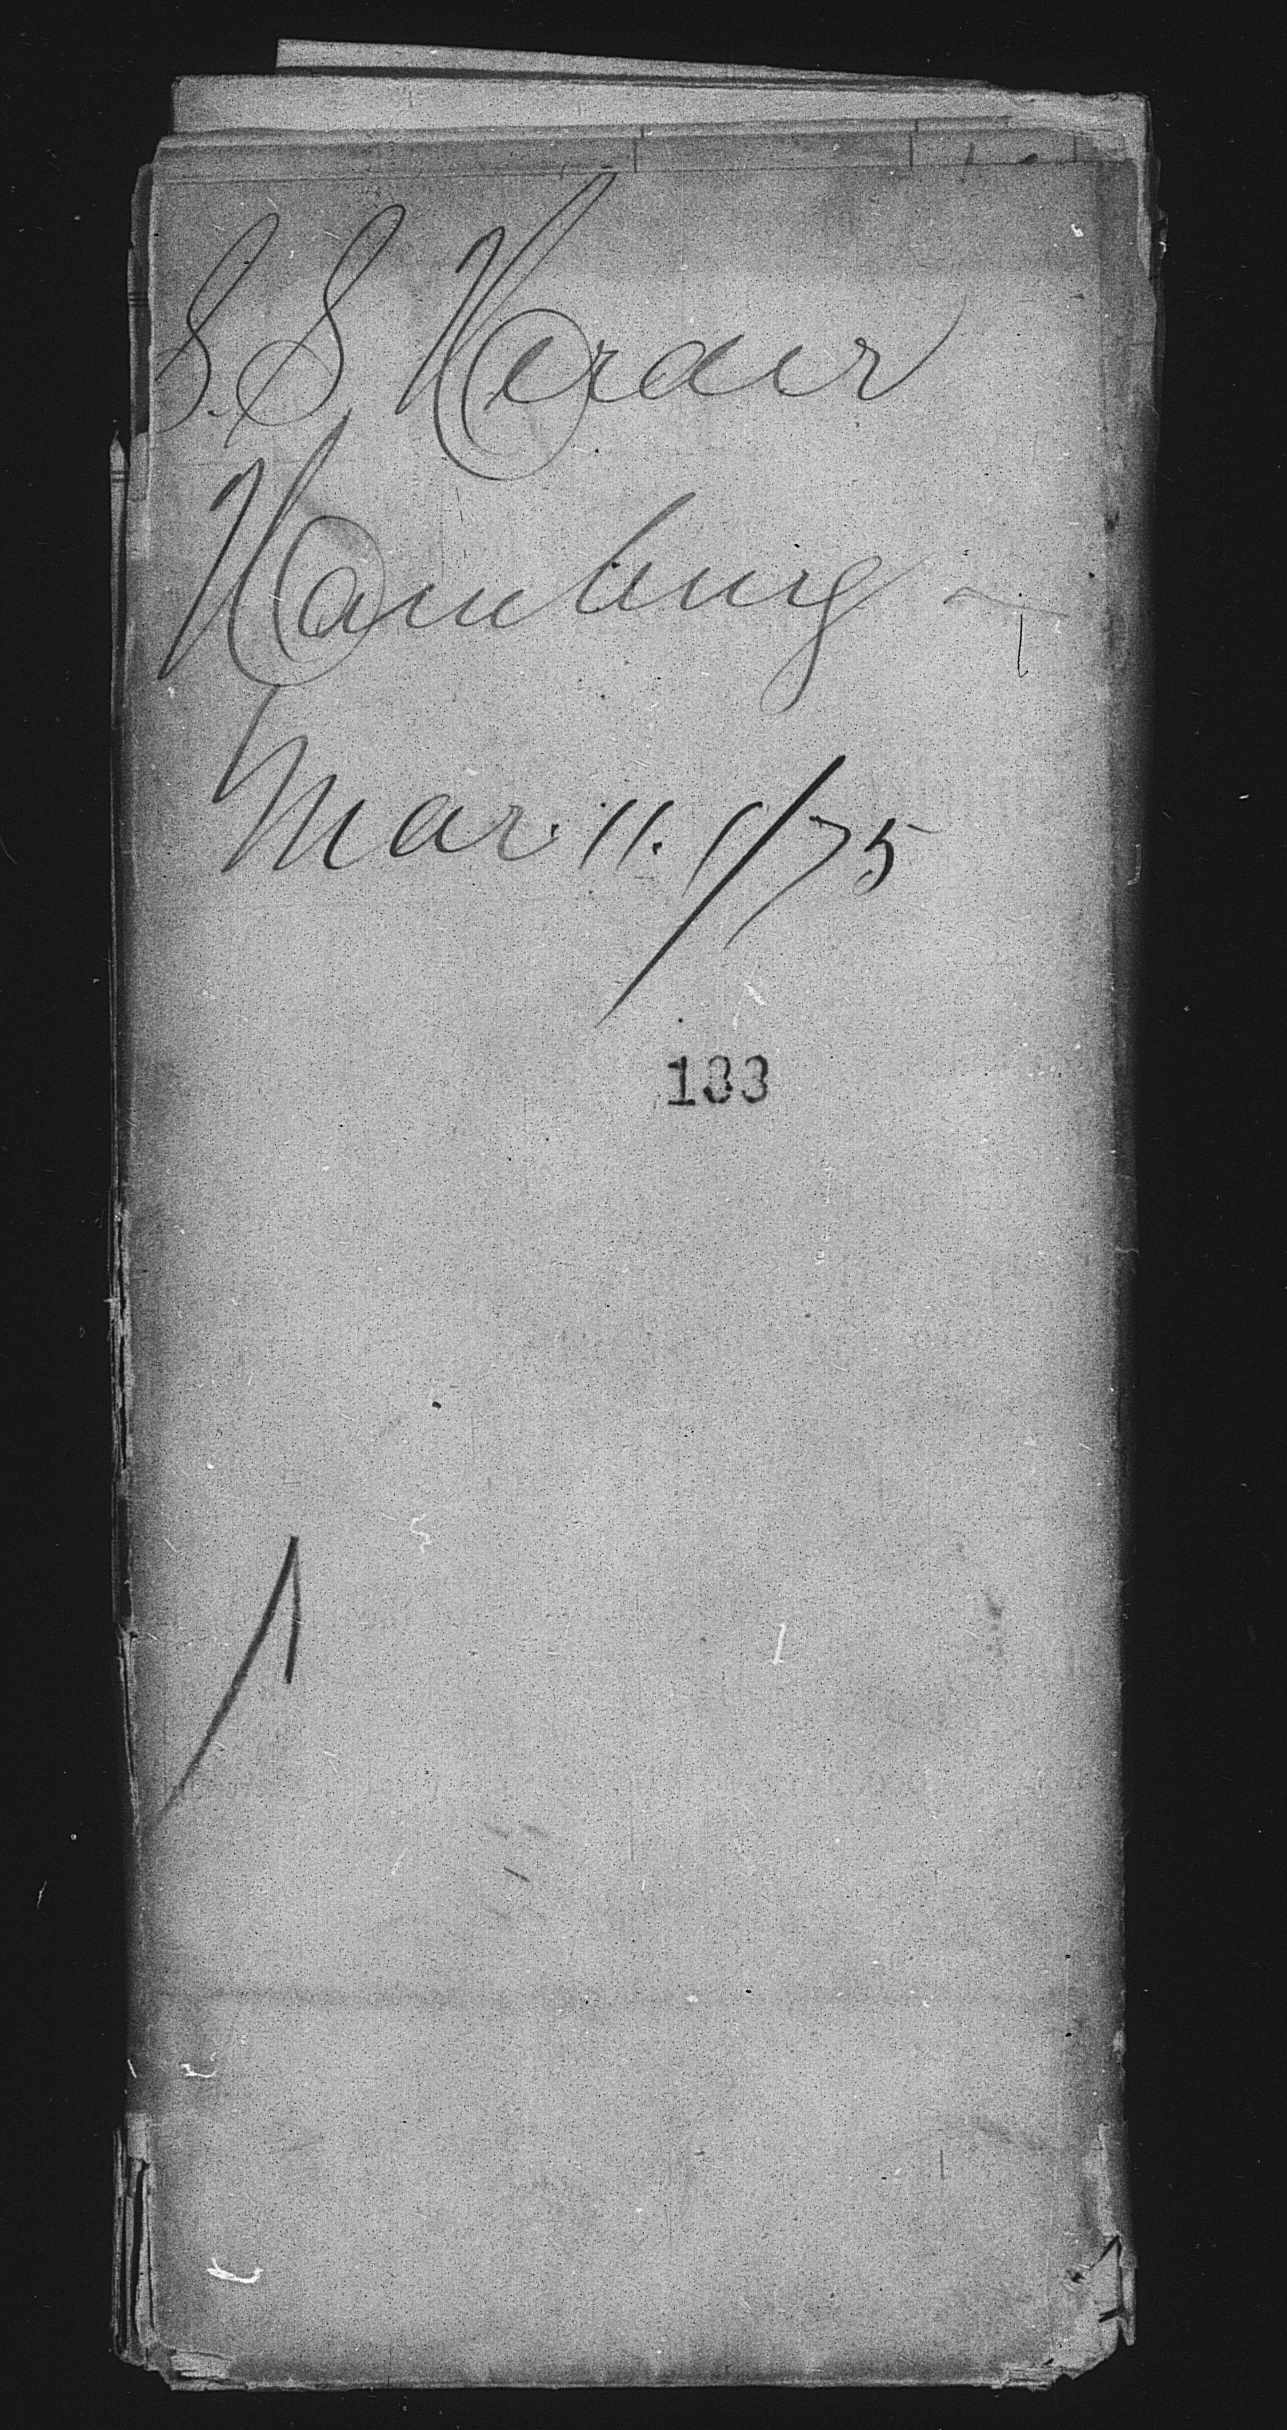 S. S. Herder
Hamburg -
Mar. 11. 1/75
133
1